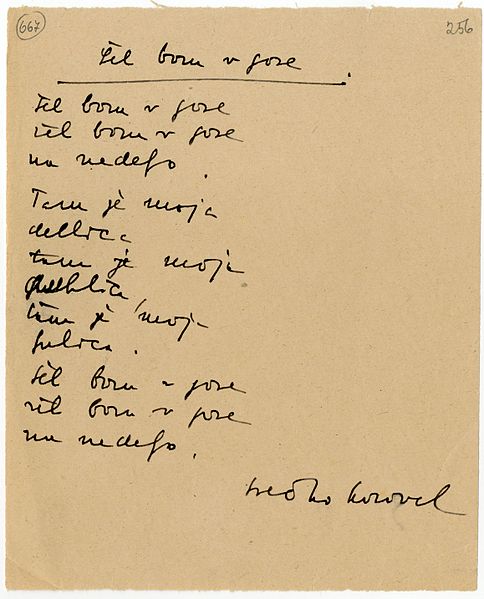 667
256
šel bom v gore
šel bom v gore
šel bom v gore
na nedefo.
Tam je moja
dellica
tam je moja
tam je moja
šel bom v gore
šel bom v gore
na nedefo.
srečko kosovel